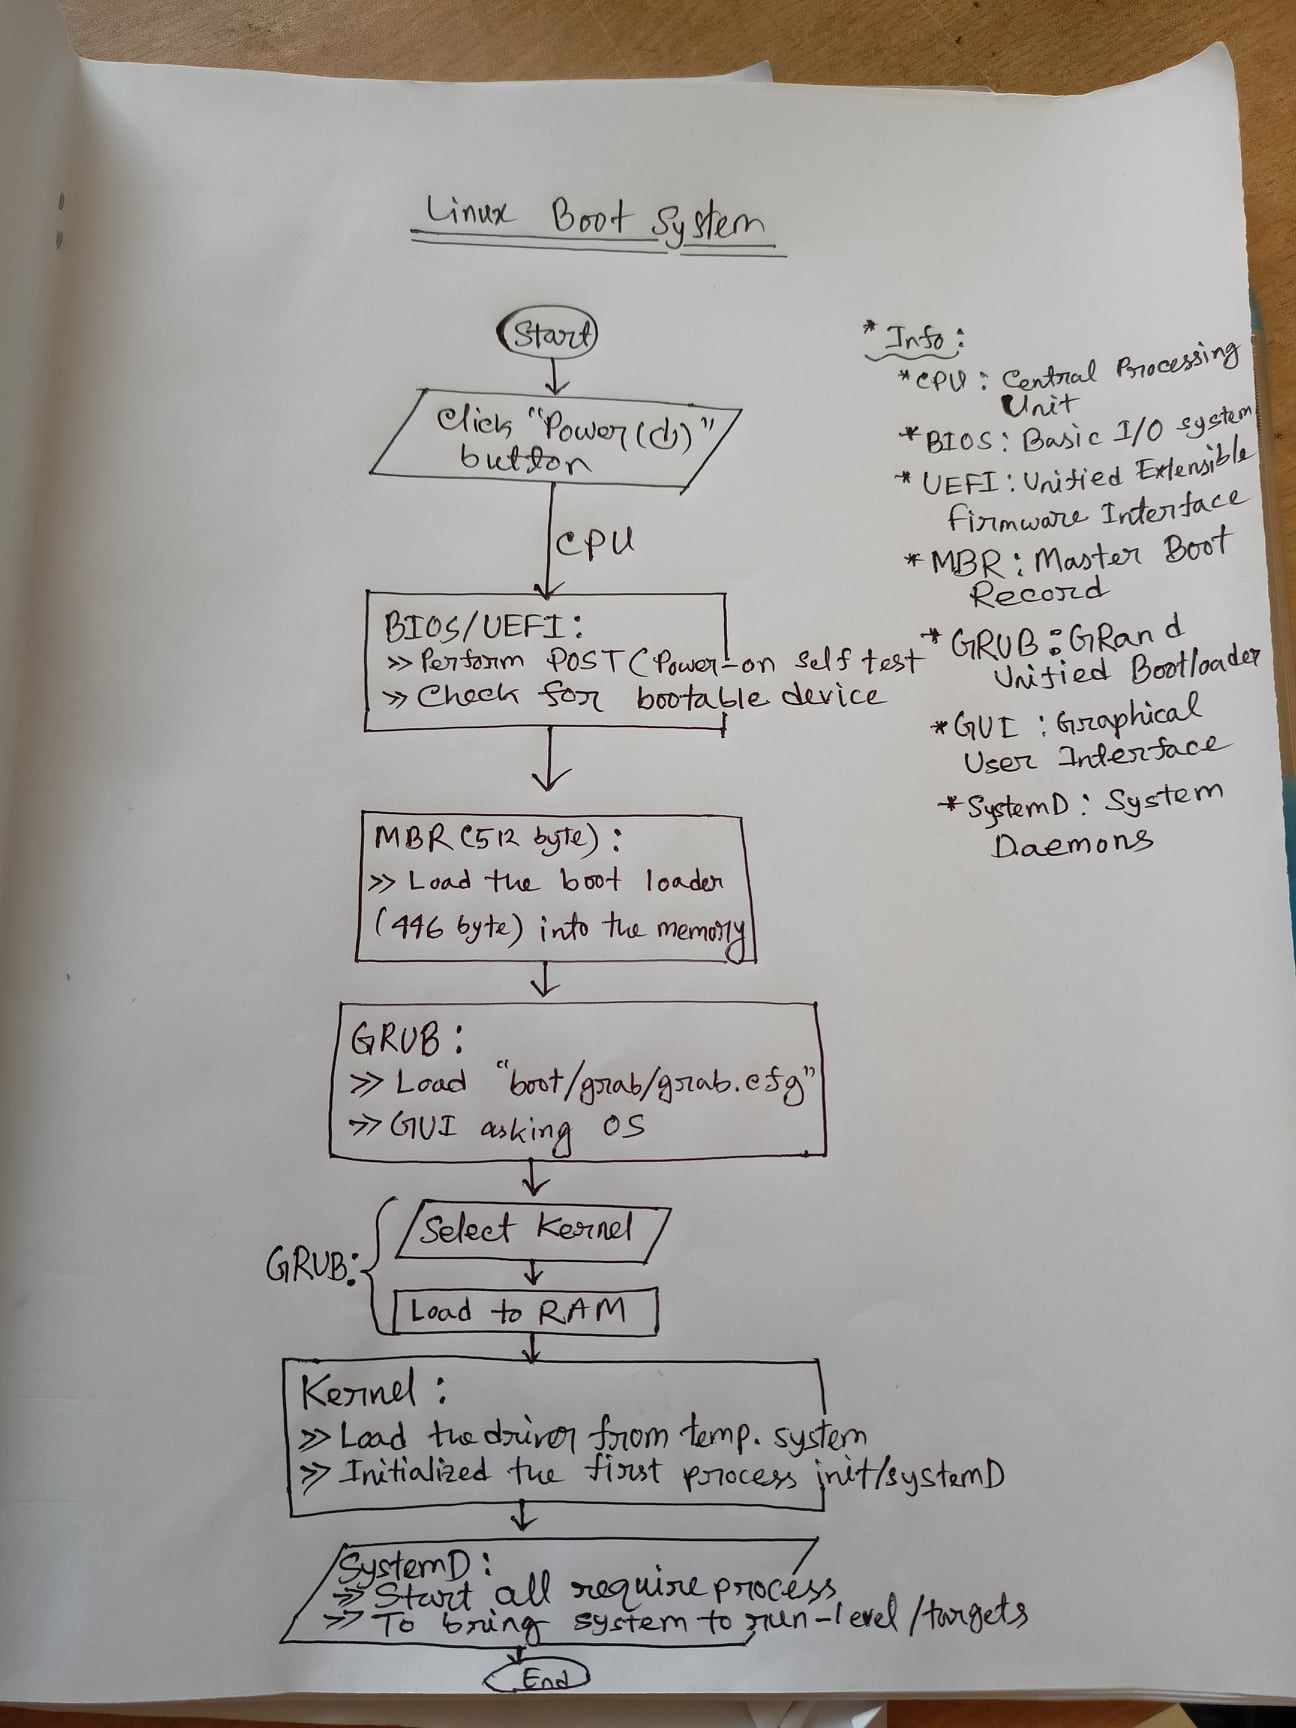 Linux Boot System
Start
Click "Power(⏻)"
button
CPU
BIOS/UEFI:
>> Perform POST (Power-on self test
>> Check for bootable device
MBR (512 byte):
>> Load the boot loader
(446 byte) into the memory
GRUB:
>> Load "boot/grab/grab.cfg"
>> GUI asking OS
GRUB:
Select Kernel
Load to RAM
Kernel:
>> Load the driver from temp. system
>> Initialized the first process init/systemD
SystemD:
>> Start all require process
>> To bring system to run-level/targets
End
* Info:
* CPU: Central Processing
Unit
* BIOS: Basic I/O system
* UEFI: Unified Extensible
Firmware Interface
* MBR: Master Boot
Record
* GRUB: GRand
Unified Bootloader
* GUI: Graphical
User Interface
* SystemD: System
Daemons